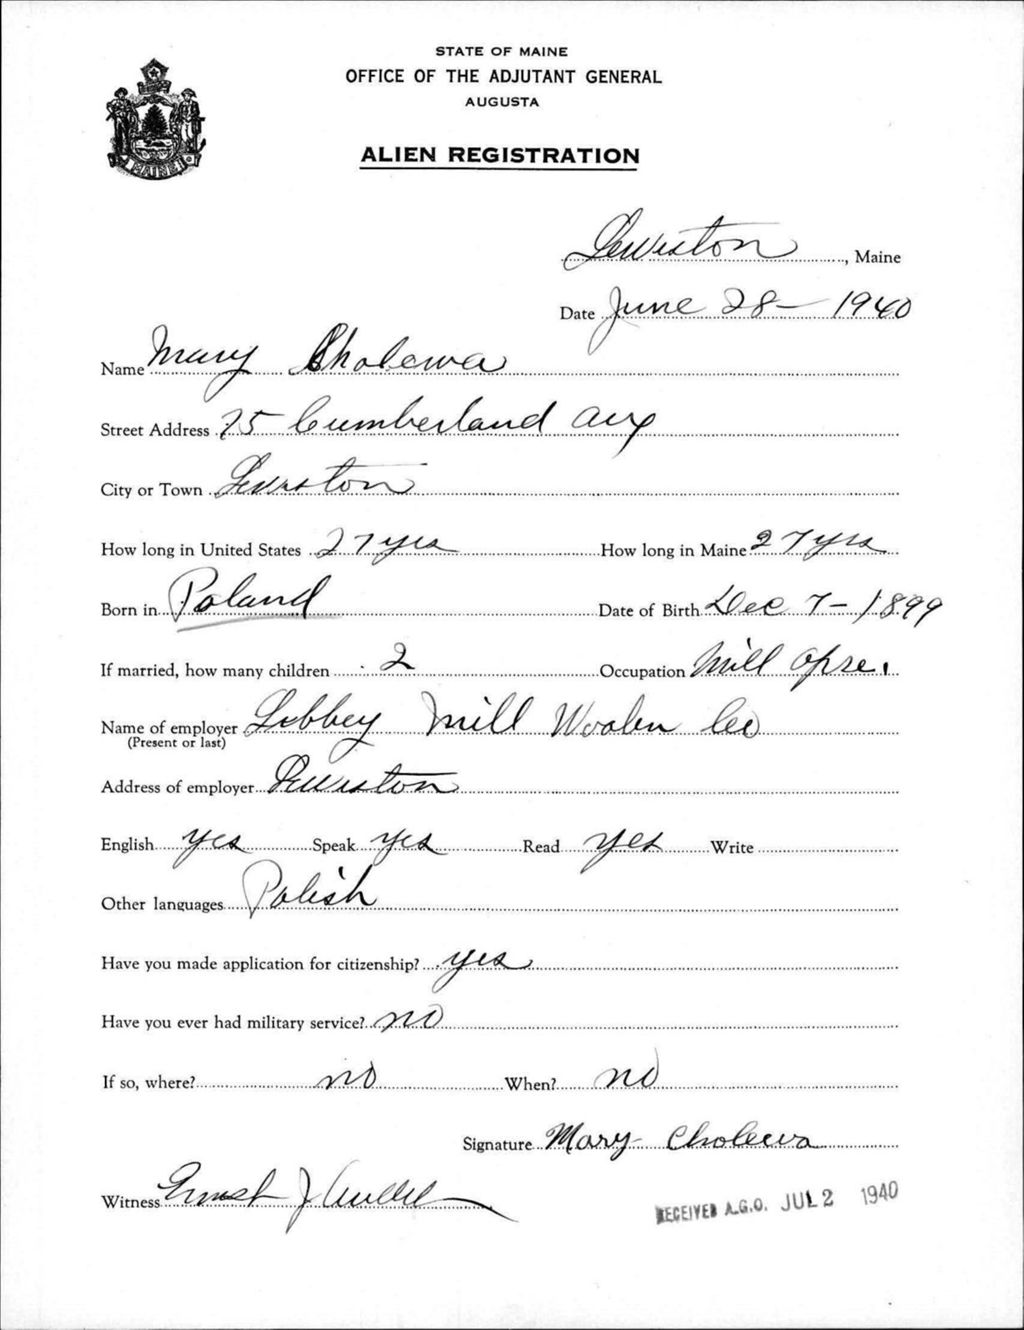 STATE OF MAINE
OFFICE OF THE ADJUTANT GENERAL
AUGUSTA
ALIEN REGISTRATION
MAINE
Lewiston, Maine
Date June 28 - 1940
Name Mary Cholewa
Street Address 75 Cumberland Ave
City or Town Lewiston
How long in United States 27 yrs How long in Maine 27 yrs
Born in Poland Date of Birth Dec 7 - 1899
If married, how many children 2 Occupation Mill Opre.
Name of employer Libbey Mill Woolen Co
(Present or last)
Address of employer Lewiston
English yes Speak yes Read yes Write
Other languages Polish
Have you made application for citizenship? yes
Have you ever had military service? no
If so, where? no When? no
Signature Mary Cholewa
Witness Ernest J
RECEIVED A.G.O. JUL 2 1940